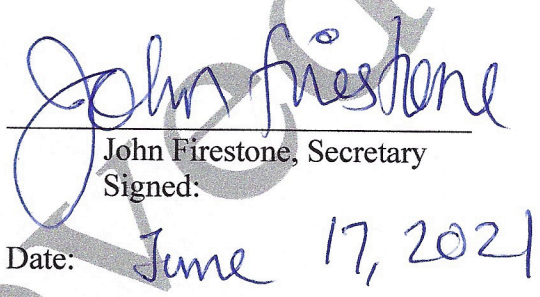 John Firestone
John Firestone, Secretary
Signed:
Date: June 17, 2021